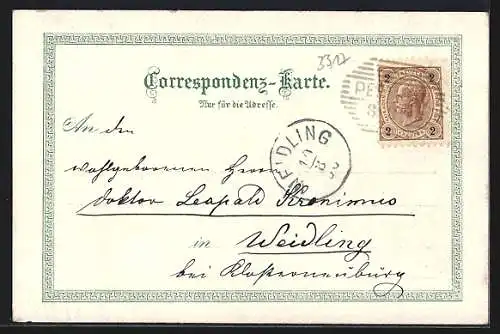 3312
Correspondenz-Karte.
Nur für die Adresse.
2 2
2 2
An den
WEIDLING
wohlgeborenen Herrn
doktor Leopold Hronimus
in Weidling
bei Klosterneuburg